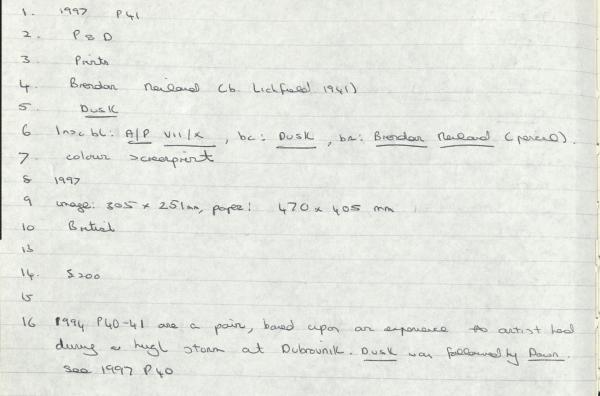 1. 1997 P41
2. P & D
3. Prints
4. Brendan Neiland (b. Lichfield 1941)
5. Dusk
6 Insc bl: A/P VII/X, bc: Dusk, br: Brendan Neiland (pencil).
7. colour screenprint
8 1997
9 image: 305 x 251mm, paper: 470 x 405 mm
10 British
13
14. $200
15
16 1994 P40-41 are a pair, based upon an experience the artist had
during a huge storm at Dubrovnik. Dusk was followed by Dawn.
See 1997 P40